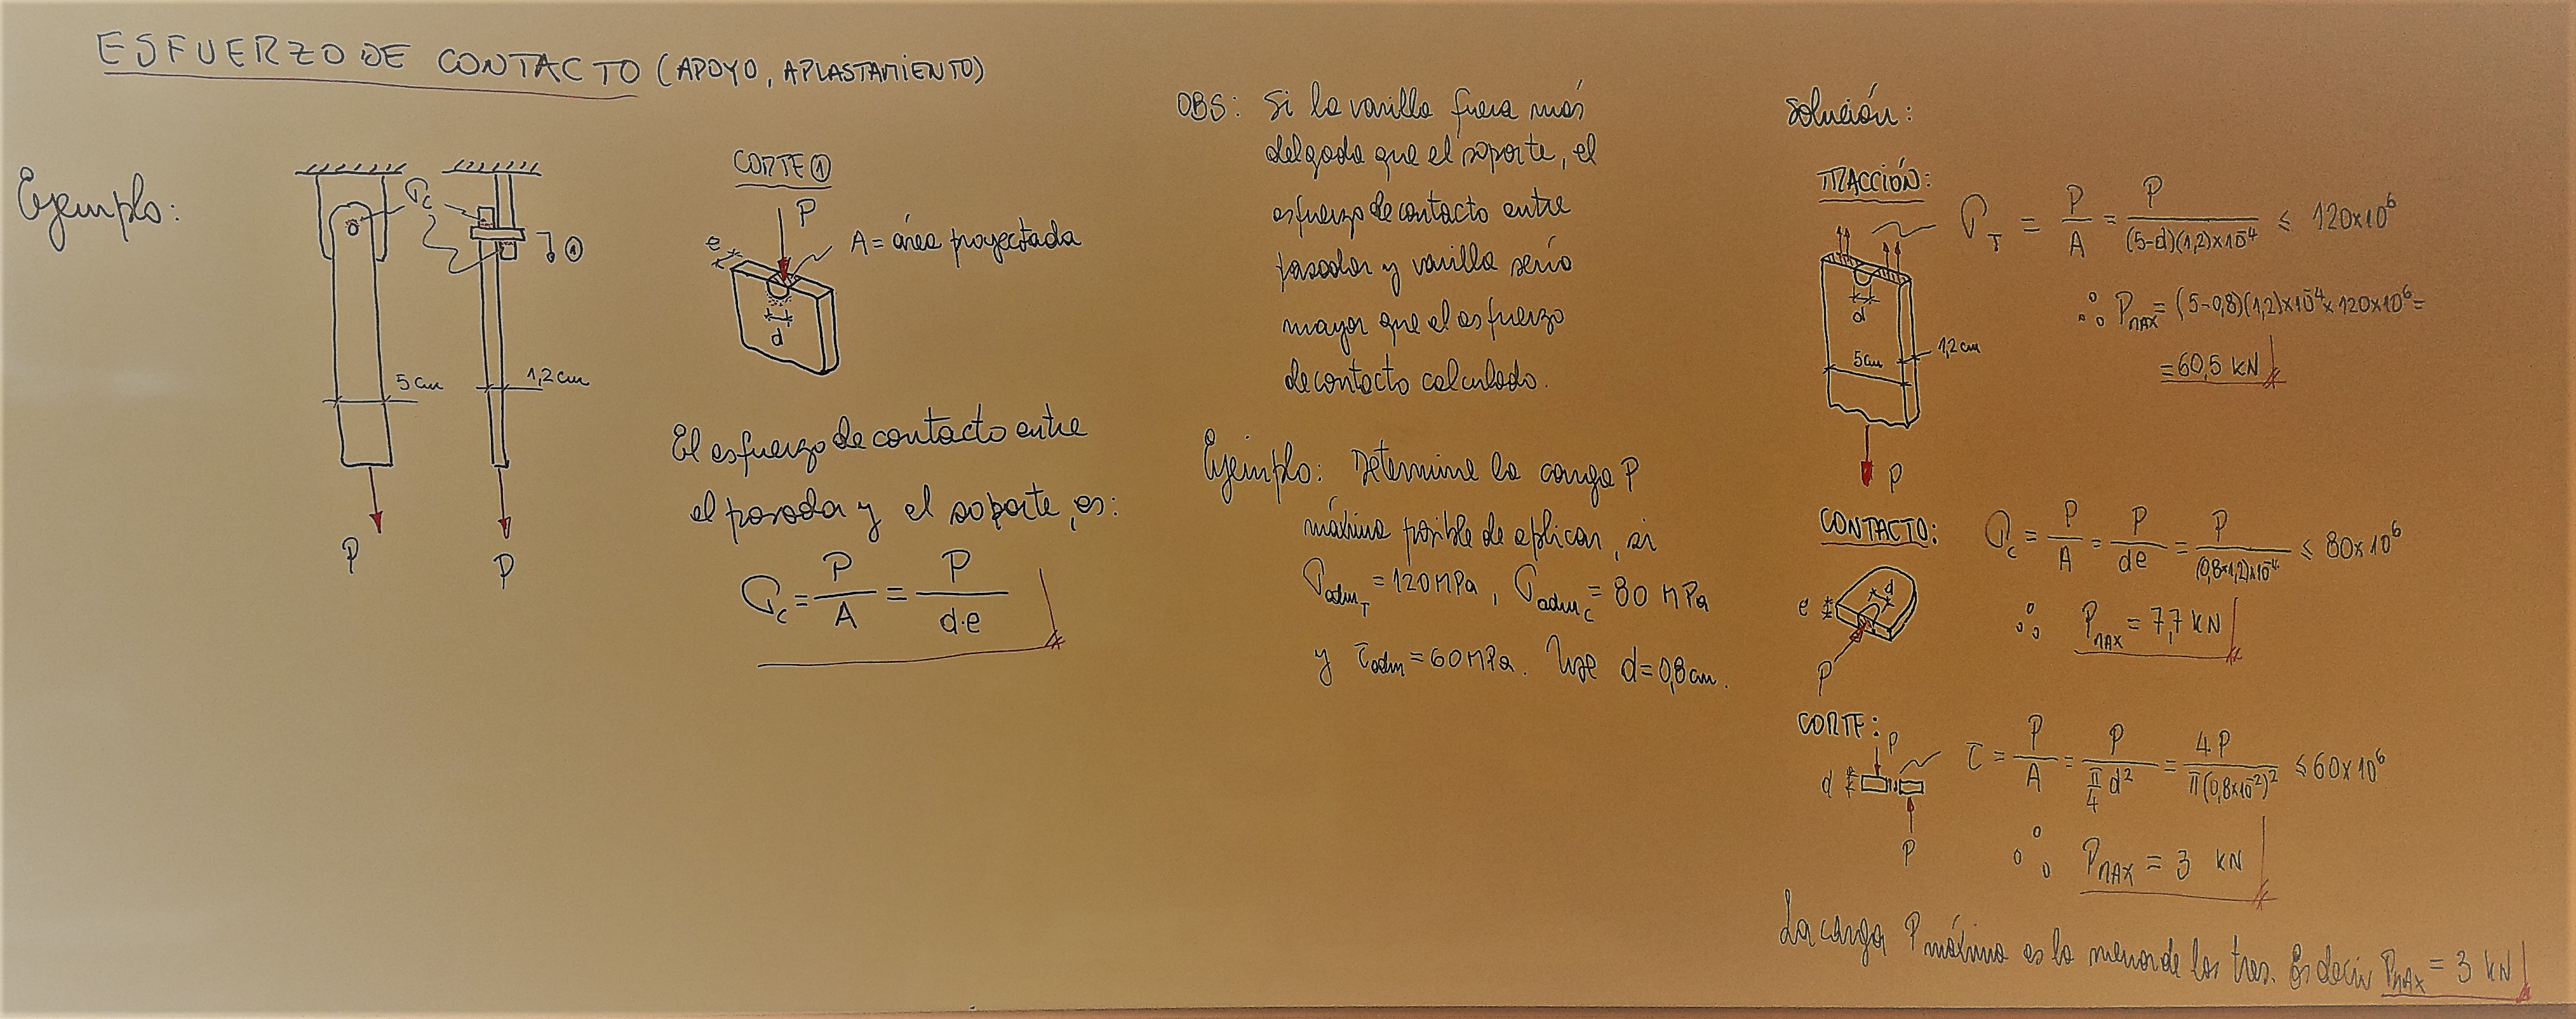 ESFUERZO DE CONTACTO (APOYO, APLASTAMIENTO)
Ejemplo:
σc
①
5 cm
1,2 cm
P
P
CORTE ①
P
e
A = área proyectada
d
El esfuerzo de contacto entre
el pasador y el soporte, es:
σc = P/A = P/d·e
OBS: Si la varilla fuera más
delgada que el soporte, el
esfuerzo de contacto entre
pasador y varilla sería
mayor que el esfuerzo
de contacto calculado.
Ejemplo: Determine la carga P
máxima posible de aplicar, si
σadmT = 120 MPa, σadmC = 80 MPa
y τadm = 60 MPa. Use d = 0,8 cm.
Solución:
TRACCIÓN:
σT = P/A = P/(5-d)(1,2)x10⁻⁴ ≤ 120x10⁶
d
5cm
1,2 cm
P
∴ PMAX = (5-0,8)(1,2)x10⁻⁴x120x10⁶ =
= 60,5 kN
CONTACTO:
σc = P/A = P/de = P/(0,8x1,2)x10⁻⁴ ≤ 80x10⁶
e
d
P
∴ PMAX = 7,7 kN
CORTE:
P
d
P
τ = P/A = P/(π/4 d²) = 4P/π(0,8x10⁻²)² ≤ 60x10⁶
∴ PMAX = 3 kN
La carga P máxima es la menor de las tres. Es decir PMAX = 3 kN